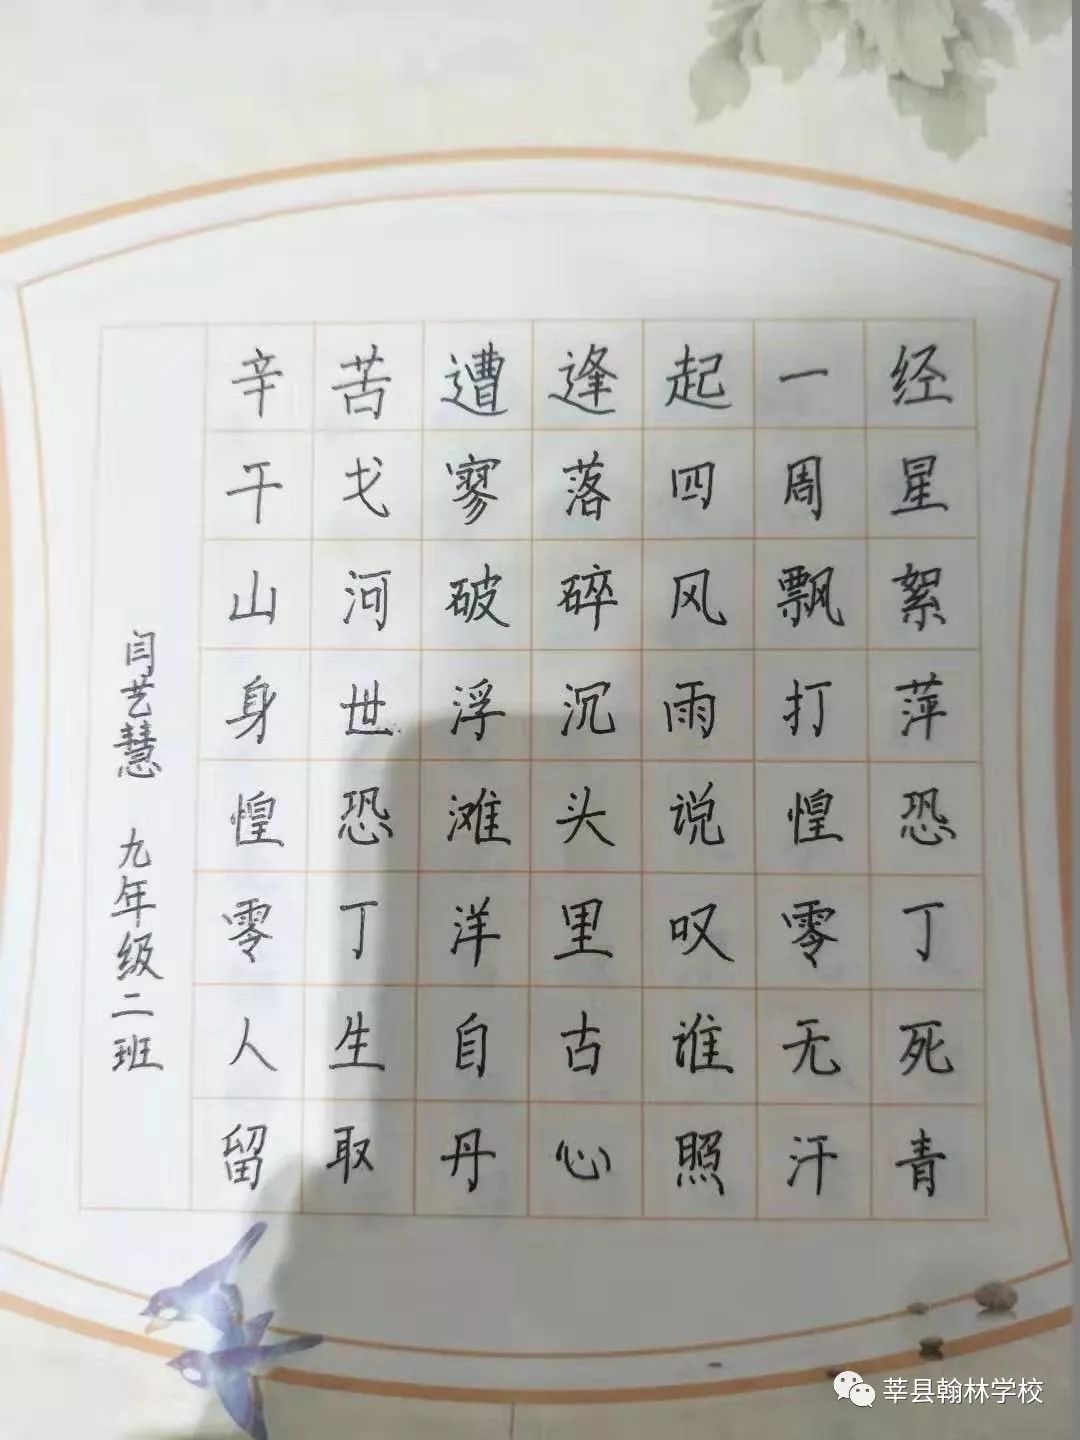 辛苦遭逢起一经
干戈寥落四周星
山河破碎风飘絮
身世浮沉雨打萍
惶恐滩头说惶恐
零丁洋里叹零丁
人生自古谁无死
留取丹心照汗青
闫艺慧 九年级二班
莘县翰林学校